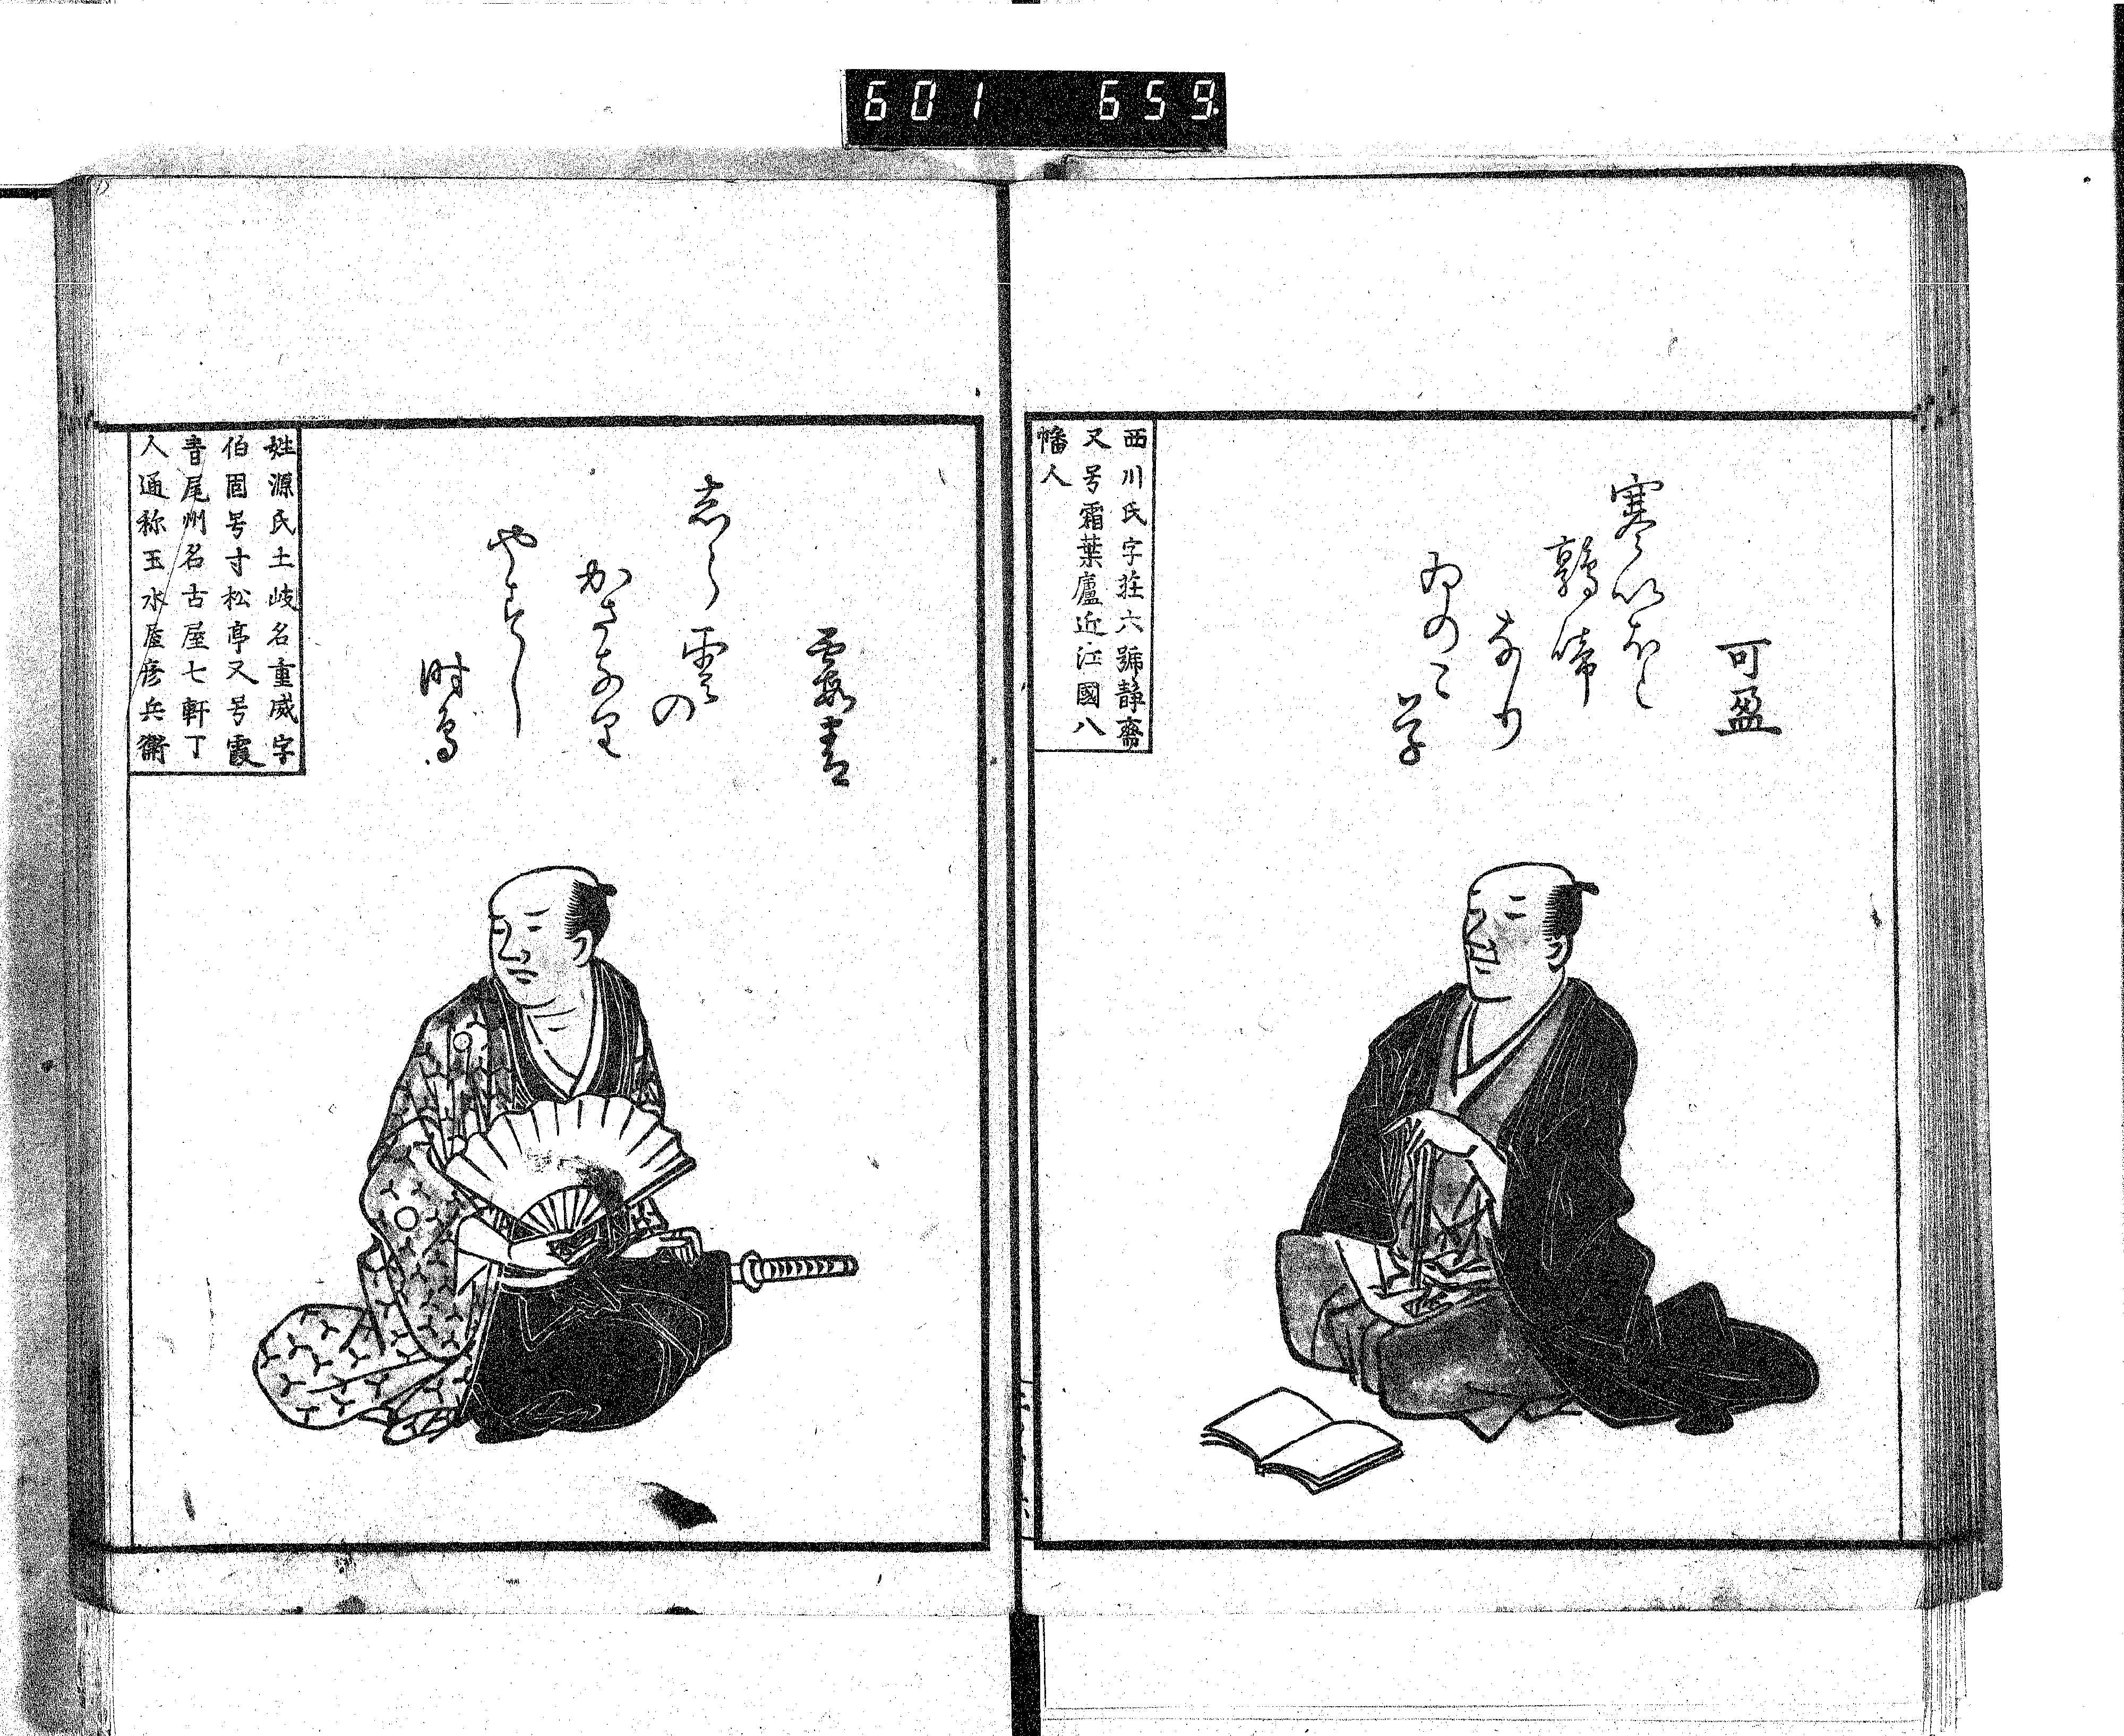 601 659
可盈
寒いほと
鶉啼
なり
西川氏字荘六號静齋
又号霜葉廬近江國八
幡人
志ら雲の
かさなり
やすし
時鳥
姓源氏土岐名重威字
伯固号寸松亭又号霞
音尾州名古屋七軒丁
人通称玉水屋彦兵衛